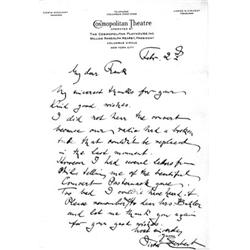 TELEPHONE
COLUMBUS
Cosmopolitan Theatre
OPERATED BY
THE COSMOPOLITAN PLAYHOUSE, INC.
WILLIAM RANDOLPH HEARST, PRESIDENT
COLUMBUS CIRCLE
NEW YORK CITY
Feb. 2
My dear Frank
My sincerest thanks for your
kind good wishes.
I did not hear the concert
because our radio had a broken
tube that couldn't be replaced
in the last moment.
However I had several letters from
telling me of the beautiful
Concert
Too bad I couldn't have heard it.
Please remember me to dear Mrs
and let me thank you again
for your good wishes.
Yours sincerely